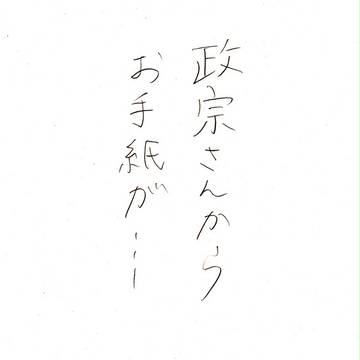 政宗さんから
お手紙が…